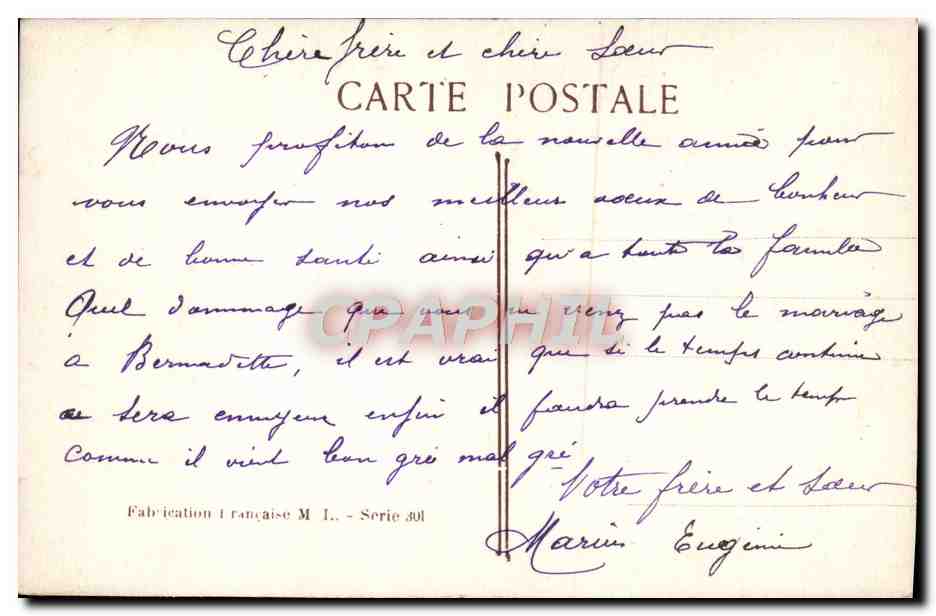 Chère frère et chère Sœur
CARTE POSTALE
Nous profiton de la nouvelle année pour
vous envoyer nos meilleur vœux de bonheur
et de bonne santé ainsi qu'a toute la famille
Quel dommage que vous ne venez pas le mariage
CPAPHIL
à Bernadette, il est vrai que si le temps continue
ce sera ennuyeux enfin il faudra prendre le temps
comme il vient bon gré mal gré
Votre frère et sœur
Fabrication Française M L. - Serie 301
Marius Eugénie